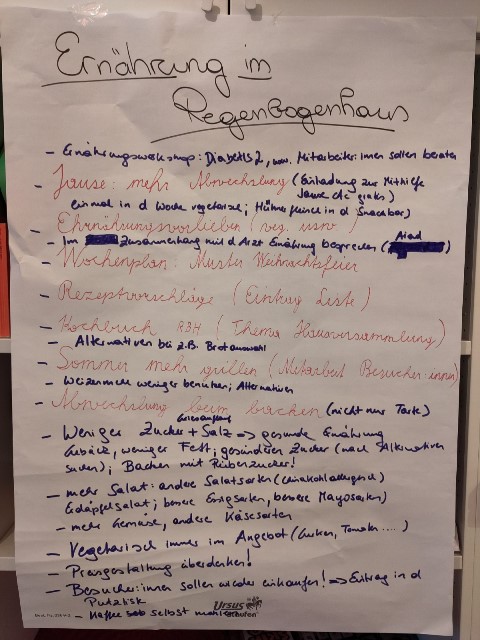 Ernährung im
Regenbogenhaus
- Ernährungsworkshop: Diabetis 2, usw. Mitarbeiter:innen sollen beraten
- Jause: mehr Abwechslung (Einladung zur Mithilfe
Jause etc gratis)
einmal in d Woche vegetarisch; Hühnerfleisch in d Snackbar)
- Ehrnährungsvorlieben (veg. usw.
- Im Zusammenhang mit d Arzt Ernährung besprechen (
- Wochenplan: Muster Weihnachtsfeier
- Rezeptvorschläge (Eintrag Liste)
- Kochbuch RBH (Thema Hausversammlung)
- Alternativen bei z.B. Brotauswahl
- Sommer mehr grillen (Mitarbeit Besucher:innen)
- Weizenmehl weniger benützen; Alternativen
- Abwechslung beim backen (nicht nur Torte)
- Weniger Zucker + Salz => gesunde Ernährung
Gebäck, weniger Fett; gesünderen Zucker (nach Alternativen
suchen); Backen mit Rübenzucker!
- mehr Salat: andere Salatsorten (
Erdäpfelsalat; bessere Essigsorten, bessere Mayosorten)
- mehr Gemüse, andere Käsesorten
- Vegetarisch immer im Angebot (Gurken, Tomaten ....)
- Preisgestaltung überdenken!
- Besucher:innen sollen wieder einkaufen! => Eintrag in d
Putzliste
- Kaffee selbst
Ursus